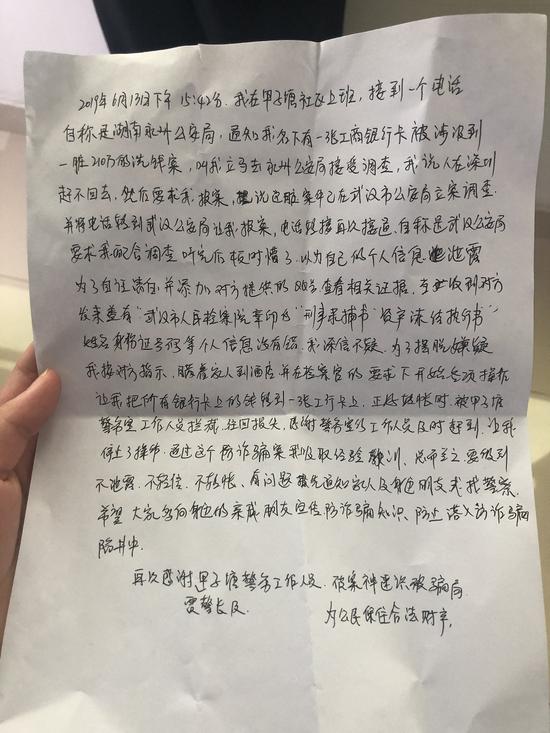 2019年6月13日下午15:42分.我在甲子塘社区上班,接到一个电话
自称是湖南永州公安局,通知我名下有一张工商银行卡被涉及到
一胜210万的洗钱案,叫我立马去永州公安局接受调查,我说人在深圳
赶不回去.然后要求我报案,说这胜案件已在武汉市公安局立案调查
并将电话转到武汉公安局让我报案,电话转接再次接通,自称是武汉公安局
要求我配合调查 听完后顿时懵了.以为自己的个人信息泄露
为了自证清白并添加对方提供的QQ号查看相关证据.收到对方
发来盖有"武汉市人民检察院章印的"刑事录捕书""资产冻结执行书"
姓名身份证号码等个人信息没有错.我深信不疑.为了摆脱嫌疑
我按对方指示,瞒着家人到酒店并在检察官的要求下开始各项操作
让我把所有银行卡上的钱转到一张工行卡上.正好转帐时.被甲子塘
警务室工作人员拦截.挽回损失.感谢警务室的工作人员及时赶到.让我
停止了操作.通过这个诈骗案我吸取经验教训.总而言之要做到
不泄露.不轻信.不转帐.有问题首先通知家人及身边朋友或找警察.
希望大家多向身边的亲戚朋友宣传防诈骗知识.防止落入诈骗
陷井中.
再次感谢甲子塘警务工作人员.破案神速识破骗局
贾警长及 为公民保住合法财产.